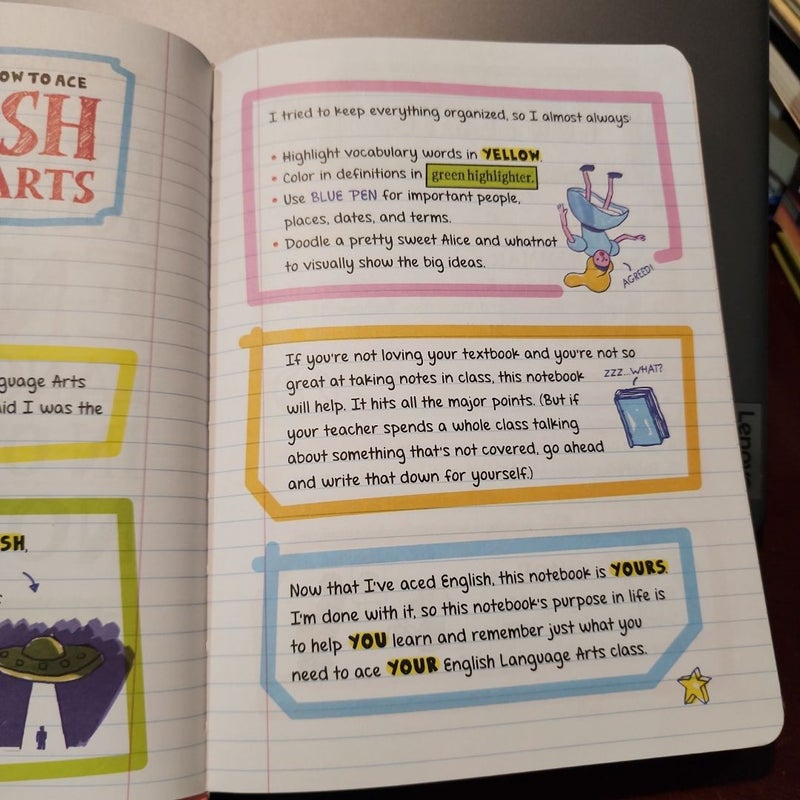 OW TO ACE
SH
ARTS
guage Arts
aid I was the
SH,
I tried to keep everything organized, so I almost always:
• Highlight vocabulary words in YELLOW.
• Color in definitions in green highlighter.
• Use BLUE PEN for important people,
places, dates, and terms.
• Doodle a pretty sweet Alice and whatnot
to visually show the big ideas.
AGREED!
If you're not loving your textbook and you're not so
great at taking notes in class, this notebook
ZZZ...WHAT?
will help. It hits all the major points. (But if
your teacher spends a whole class talking
about something that's not covered, go ahead
and write that down for yourself.)
Now that I've aced English, this notebook is YOURS.
I'm done with it, so this notebook's purpose in life is
to help YOU learn and remember just what you
need to ace YOUR English Language Arts class.
Lenovo